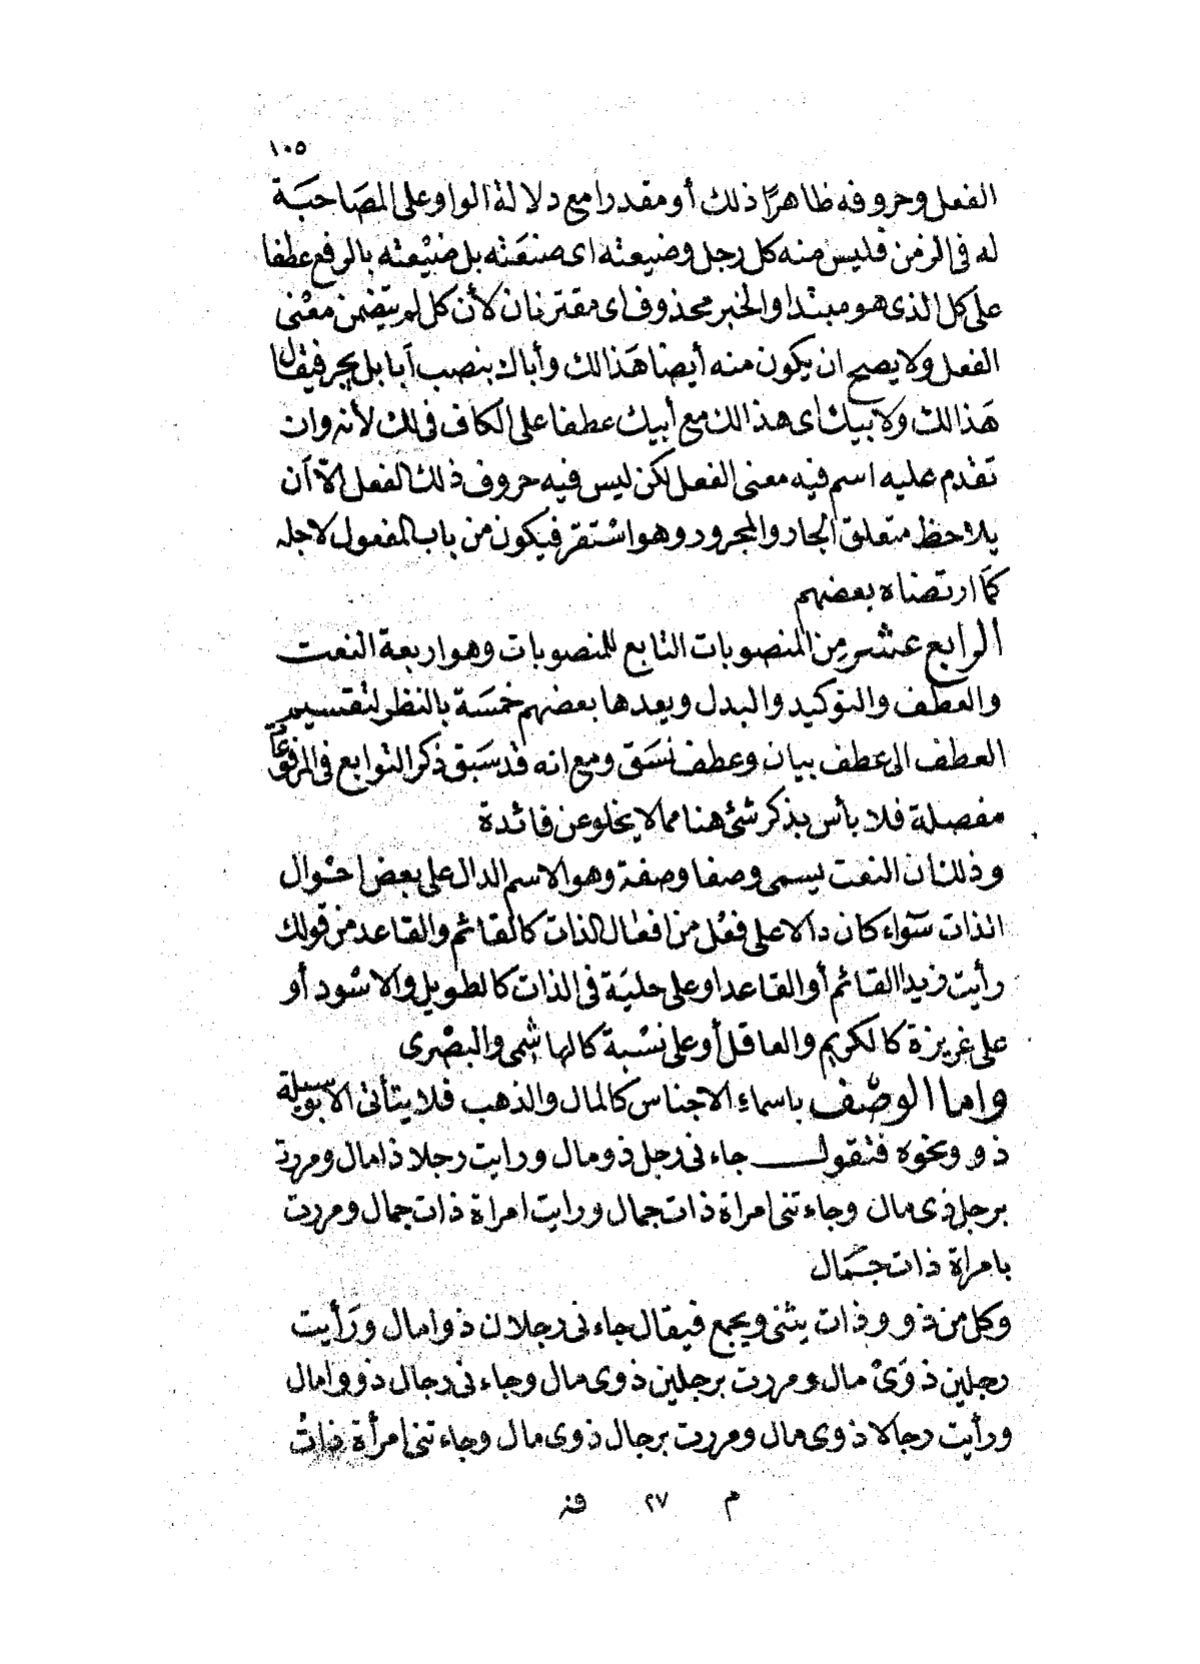 ١٠٥
الفعل وحروفه ظاهرًا ذلك أو مقدرا مع دلالة الواو على المصَاحبَة
له فى الزمن فليس منه كل رجل وضيعته اى صنعَته بل ضيْعته بالرفع عطفا
على كل الذى هو مبتدا والخبر محذوف اى مقترنان لأن كل لم يتضمن معْنى
الفعل ولا يصح ان يكون منه أيضا هَذا لك وأباك بنصب أبا بل يجر فيقال
هَذا لك ولابيك اى هذا لك مع أبيك عطفا على الكاف فى لك لأنه وان
تقدم عليه اسم فيه معنى الفعل لكن ليس فيه حروف ذلك الفعل الاّ أن
يلاحظ متعلق الجار والمجرور وهو اسْتقر فيكون من باب المفعول لاجله
كمَا ارتضاه بعضهم
الرابع عشر مِن المنصوبات التابع للمنصوبات وهو اربعة النعت
والعطف والتوكيد والبدل ويعدها بعضهم خمسَة بالنظر لتقسيم
العطف الى عطف بيان وعطف نسَق ومع انه قد سَبق ذكر التوابع فى المرفوعات
مفصلة فلا بأس بذكر شئ هنا مما لا يخلو عن فائدة
وذلك ان النعت يسمى وصفا وصفة وهو الاسم الدال على بعض احْوال
الذات سَواء كان دالا على فعْل من افعَال الذات كالقائم والقاعد من قولك
رأيت زيدا القائم أو القاعد او على حليَة فى الذات كالطويل والاسْود أو
على غريزة كالكريم والعاقل أو على نسْبة كالهاشمى والبصْرى
واما الوصْف باسماء الاجناس كالمال والذهب فلا يتأتى الا بوسيلة
ذو ونحوه فتقول جاءنى رجل ذو مال ورايت رجلا ذا مال ومررت
برجل ذى مال وجاءتنى امراة ذات جمال ورايت امراة ذات جمال ومررت
بامراة ذات جمَال
وكل من ذو وذات يثنى ويجمع فيقال جاءنى رجلان ذوا مال ورَأيت
رجلين ذوَىْ مال ومررت برجلين ذوى مال وجاءنى رجال ذووا مال
ورأيت رجالا ذوى مال ومررت برجال ذوى مال وجاءتنى امرأة ذاتُ
م ٢٧ فز